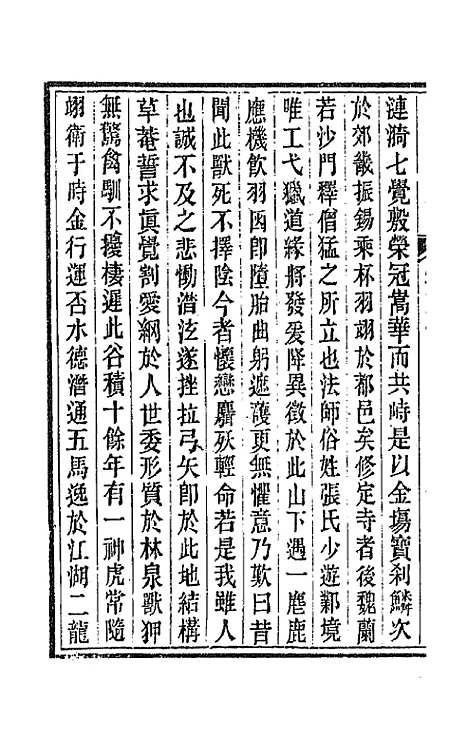 漣漪七覺殿榮冠嵩華而共峙是以金塲寶刹鱗次
於郊畿振錫乘杯羽翊於都邑矣修定寺者後魏蘭
若沙門釋僧猛之所立也法師俗姓張氏少遊鄴境
唯工弋獵道緣將發爰降異徵於此山下遇一麀鹿
應機飲羽因即墮胎曲躬遮護更無懼意乃歎曰昔
聞此獸死不擇陰今者懷戀麛殀輕命若是我雖人
也誠不及之悲慟潸泫遂挫拉弓矢即於此地結構
草菴誓求眞覺割愛網於人世委形質於林泉獸狎
無驚禽馴不擾棲遲此谷積十餘年有一神虎常隨
翊衛于時金行運否水德潛通五馬逸於江湖二龍